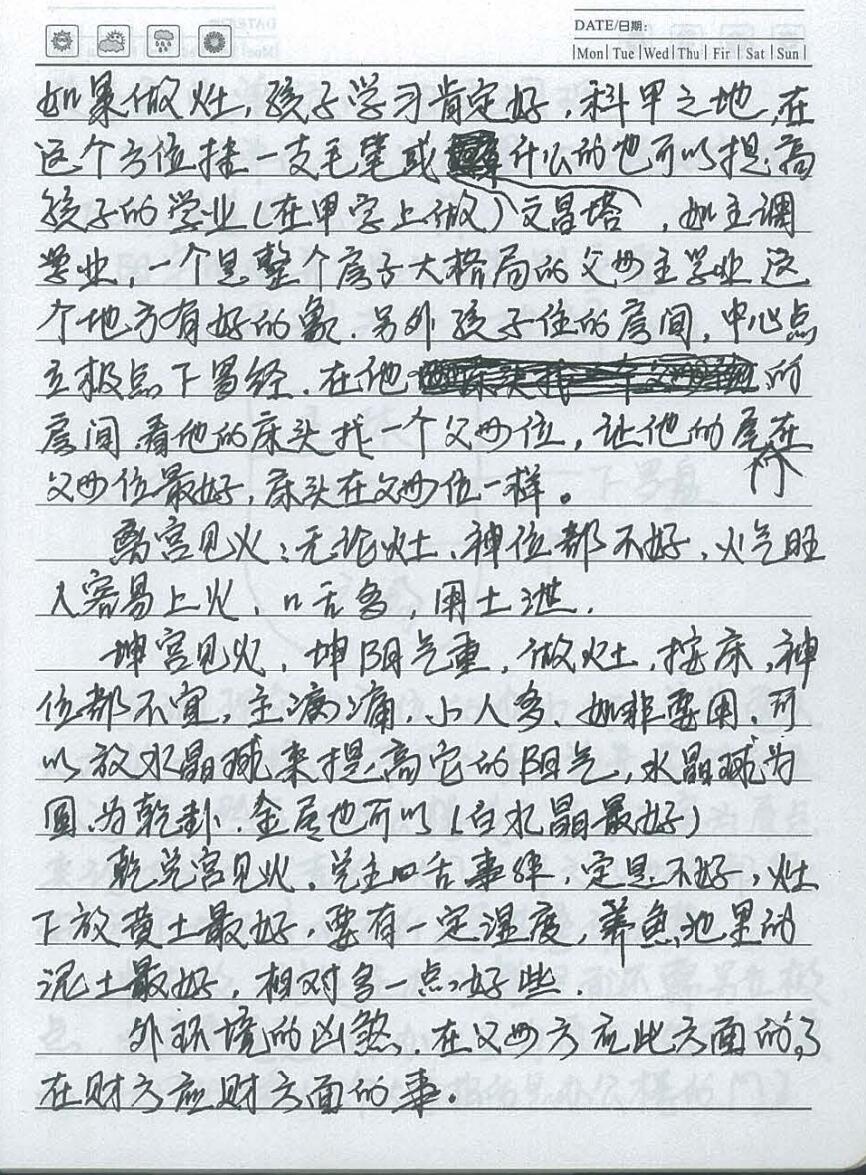 DATE/日期:
Mon Tue Wed Thu Fir Sat Sun
如果做灶，孩子学习肯定好，科甲之地，在
这个方位挂一支毛笔或什么的也可以提高
孩子的学业（在甲字上做）文昌塔，如主调
学业，一个是整个房子大格局的父母主学业这
个地方有好的象．另外孩子住的房间，中心点
立极点下罗经．在他的
房间，看他的床头找一个父母位，让他的座在
父母位最好，床头在父母位一样。
离宫见火：无论灶、神位都不好，火气旺
人容易上火，口舌多，用土泄．
坤宫见火，坤阴气重，做灶，按床，神
位都不宜，主病痛，小人多，如非要用，可
以放水晶球来提高它的阳气，水晶球为
圆，为乾卦．金属也可以（白水晶最好）
乾兑宫见火，兑主口舌事绊，定是不好，灶
下放黄土最好，要有一定湿度，养鱼池里的
泥土最好，相对多一点好些．
外环境的凶煞，在父母方应此方面的了
在财方应财方面的事。